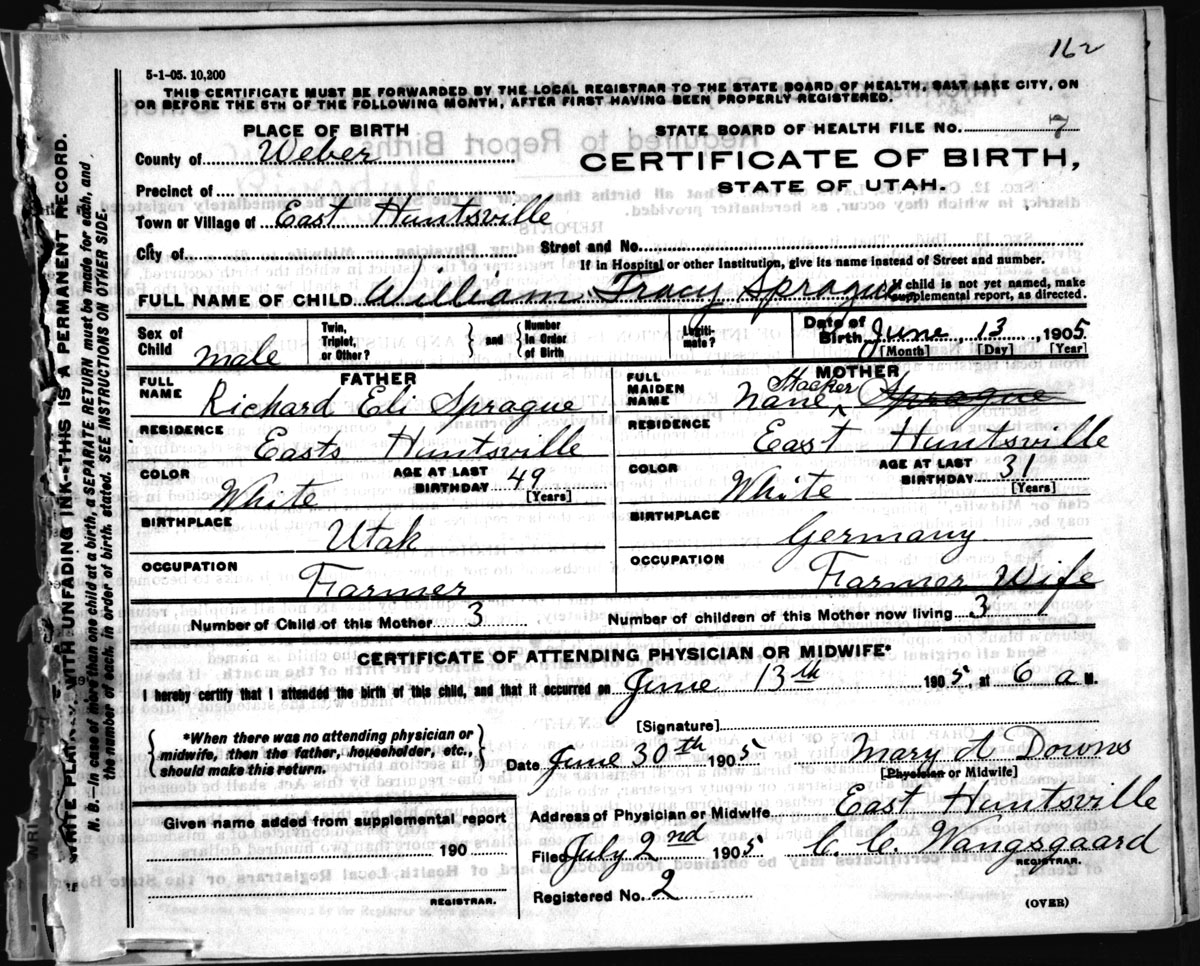 162
5-1-05. 10,200
THIS CERTIFICATE MUST BE FORWARDED BY THE LOCAL REGISTRAR TO THE STATE BOARD OF HEALTH, SALT LAKE CITY, ON
OR BEFORE THE 5TH OF THE FOLLOWING MONTH, AFTER FIRST HAVING BEEN PROPERLY REGISTERED.
PLACE OF BIRTH
STATE BOARD OF HEALTH FILE NO. 7
County of Weber
CERTIFICATE OF BIRTH,
Precinct of
STATE OF UTAH.
Town or Village of East Huntsville
City of
Street and No.
If in Hospital or other Institution, give its name instead of Street and number.
FULL NAME OF CHILD William Tracy Sprague
If child is not yet named, make
supplemental report, as directed.
Sex of
Child male
Twin,
Triplet,
or Other?
and
Number
in Order
of Birth
Legiti-
mate?
Date of
Birth June 13, 1905
[Month] [Day] [Year]
FATHER
FULL
NAME Richard Eli Sprague
MOTHER
FULL
MAIDEN
NAME Nane Stacker Sprague
RESIDENCE
Easts Huntsville
RESIDENCE
East Huntsville
COLOR
White
AGE AT LAST
BIRTHDAY 49
[Years]
COLOR
White
AGE AT LAST
BIRTHDAY 31
[Years]
BIRTHPLACE
Utah
BIRTHPLACE
Germany
OCCUPATION
Farmer
OCCUPATION
Farmer Wife
Number of Child of this Mother 3
Number of children of this Mother now living 3
CERTIFICATE OF ATTENDING PHYSICIAN OR MIDWIFE*
I hereby certify that I attended the birth of this child, and that it occurred on June 13th 1905 at 6 a M.
*When there was no attending physician or
midwife, then the father, householder, etc.,
should make this return.
[Signature]
Date June 30th 1905 Mary A Downs
[Physician or Midwife]
Given name added from supplemental report
190
REGISTRAR.
Address of Physician or Midwife East Huntsville
Filed July 2nd 1905 C. C. Wangsgaard
REGISTRAR.
Registered No. 2
(OVER)
WRITE PLAINLY WITH UNFADING INK--THIS IS A PERMANENT RECORD.
N. B.--In case of more than one child at a birth, a SEPARATE RETURN must be made for each, and
the number of each, in order of birth, stated. SEE INSTRUCTIONS ON OTHER SIDE.